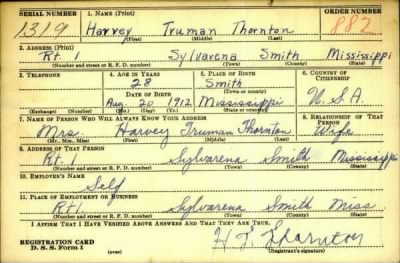 SERIAL NUMBER 1. NAME (Print) ORDER NUMBER
1319 Harvey Truman Thornton 882
(First) (Middle) (Last)
2. ADDRESS (Print)
Rt. 1 Sylvarena Smith Mississippi
(Number and street or R. F. D. number) (Town) (County) (State)
3. TELEPHONE 4. AGE IN YEARS 5. PLACE OF BIRTH 6. COUNTRY OF CITIZENSHIP
28 Smith
DATE OF BIRTH (Town or county)
Aug. 20 1912 Mississippi U.S.A.
(Exchange) (Number) (Mo.) (Day) (Yr.) (State or country)
7. NAME OF PERSON WHO WILL ALWAYS KNOW YOUR ADDRESS 8. RELATIONSHIP OF THAT PERSON
Mrs Harvey Truman Thornton Wife
(Mr., Mrs., Miss) (First) (Middle) (Last)
9. ADDRESS OF THAT PERSON
Rt. 1 Sylvarena Smith Mississippi
(Number and street or R. F. D. number) (Town) (County) (State)
10. EMPLOYER'S NAME
Self
11. PLACE OF EMPLOYMENT OR BUSINESS
Rt 1 Sylvarena Smith Miss
(Number and street or R. F. D. number) (Town) (County) (State)
I AFFIRM THAT I HAVE VERIFIED ABOVE ANSWERS AND THAT THEY ARE TRUE.
REGISTRATION CARD
D. S. S. Form 1
H T Thornton
(Registrant's signature)